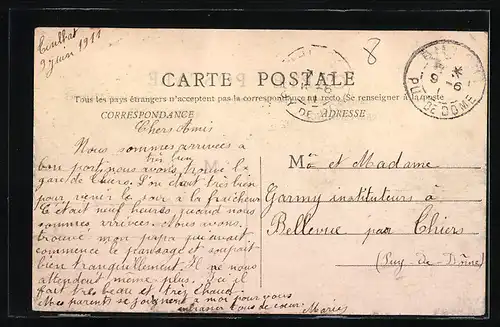 Cunlhat
9 juin 1911
8
CARTE POSTALE
Tous les pays étrangers n'acceptent pas la correspondance au recto (Se renseigner à la poste
CORRESPONDANCE
ADRESSE
Chers Amis
Nous sommes arrivées à
très bien
bon port nous avons trouvé la
gare de Thiers. L'on était très bien
pour venir le soir à la fraîcheur
C'était neuf heures quand nous
sommes arrivées. Nous avons
trouvé mon papa qui avait
commencé le pansage et soupait
bien tranquillement. Il ne nous
attendait même plus. Ici il
fait très beau et très chaud.
Mes parents se joignent à moi pour vous
embrasser tous de cœur.
Maria
Mr et Madame
Garmy instituteurs à
Bellevue par Thiers
(Puy-de-Dôme)
PUY-DE-DOME
9 -6